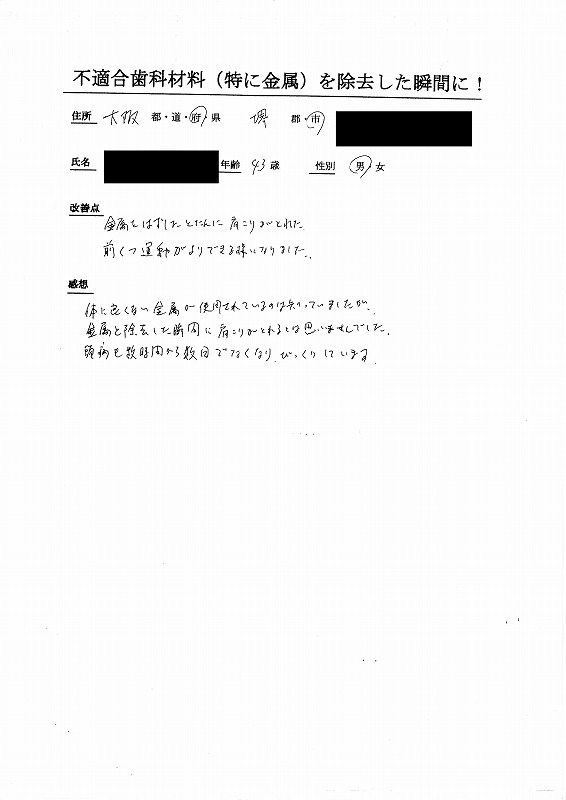 不適合歯科材料（特に金属）を除去した瞬間に！
住所 大阪 都・道・府・県 堺 郡・市
氏名 年齢 43 歳 性別 男・女
改善点
金属をはずしたとたんに 肩こりがとれた.
前くつ運動がよりできる様になりました.
感想
体に良くない金属が使用されているのは知っていましたが、
金属を除去した瞬間に肩こりがとれるとは思いませんでした.
頭痛も数時間から数日でなくなり、びっくりしています.